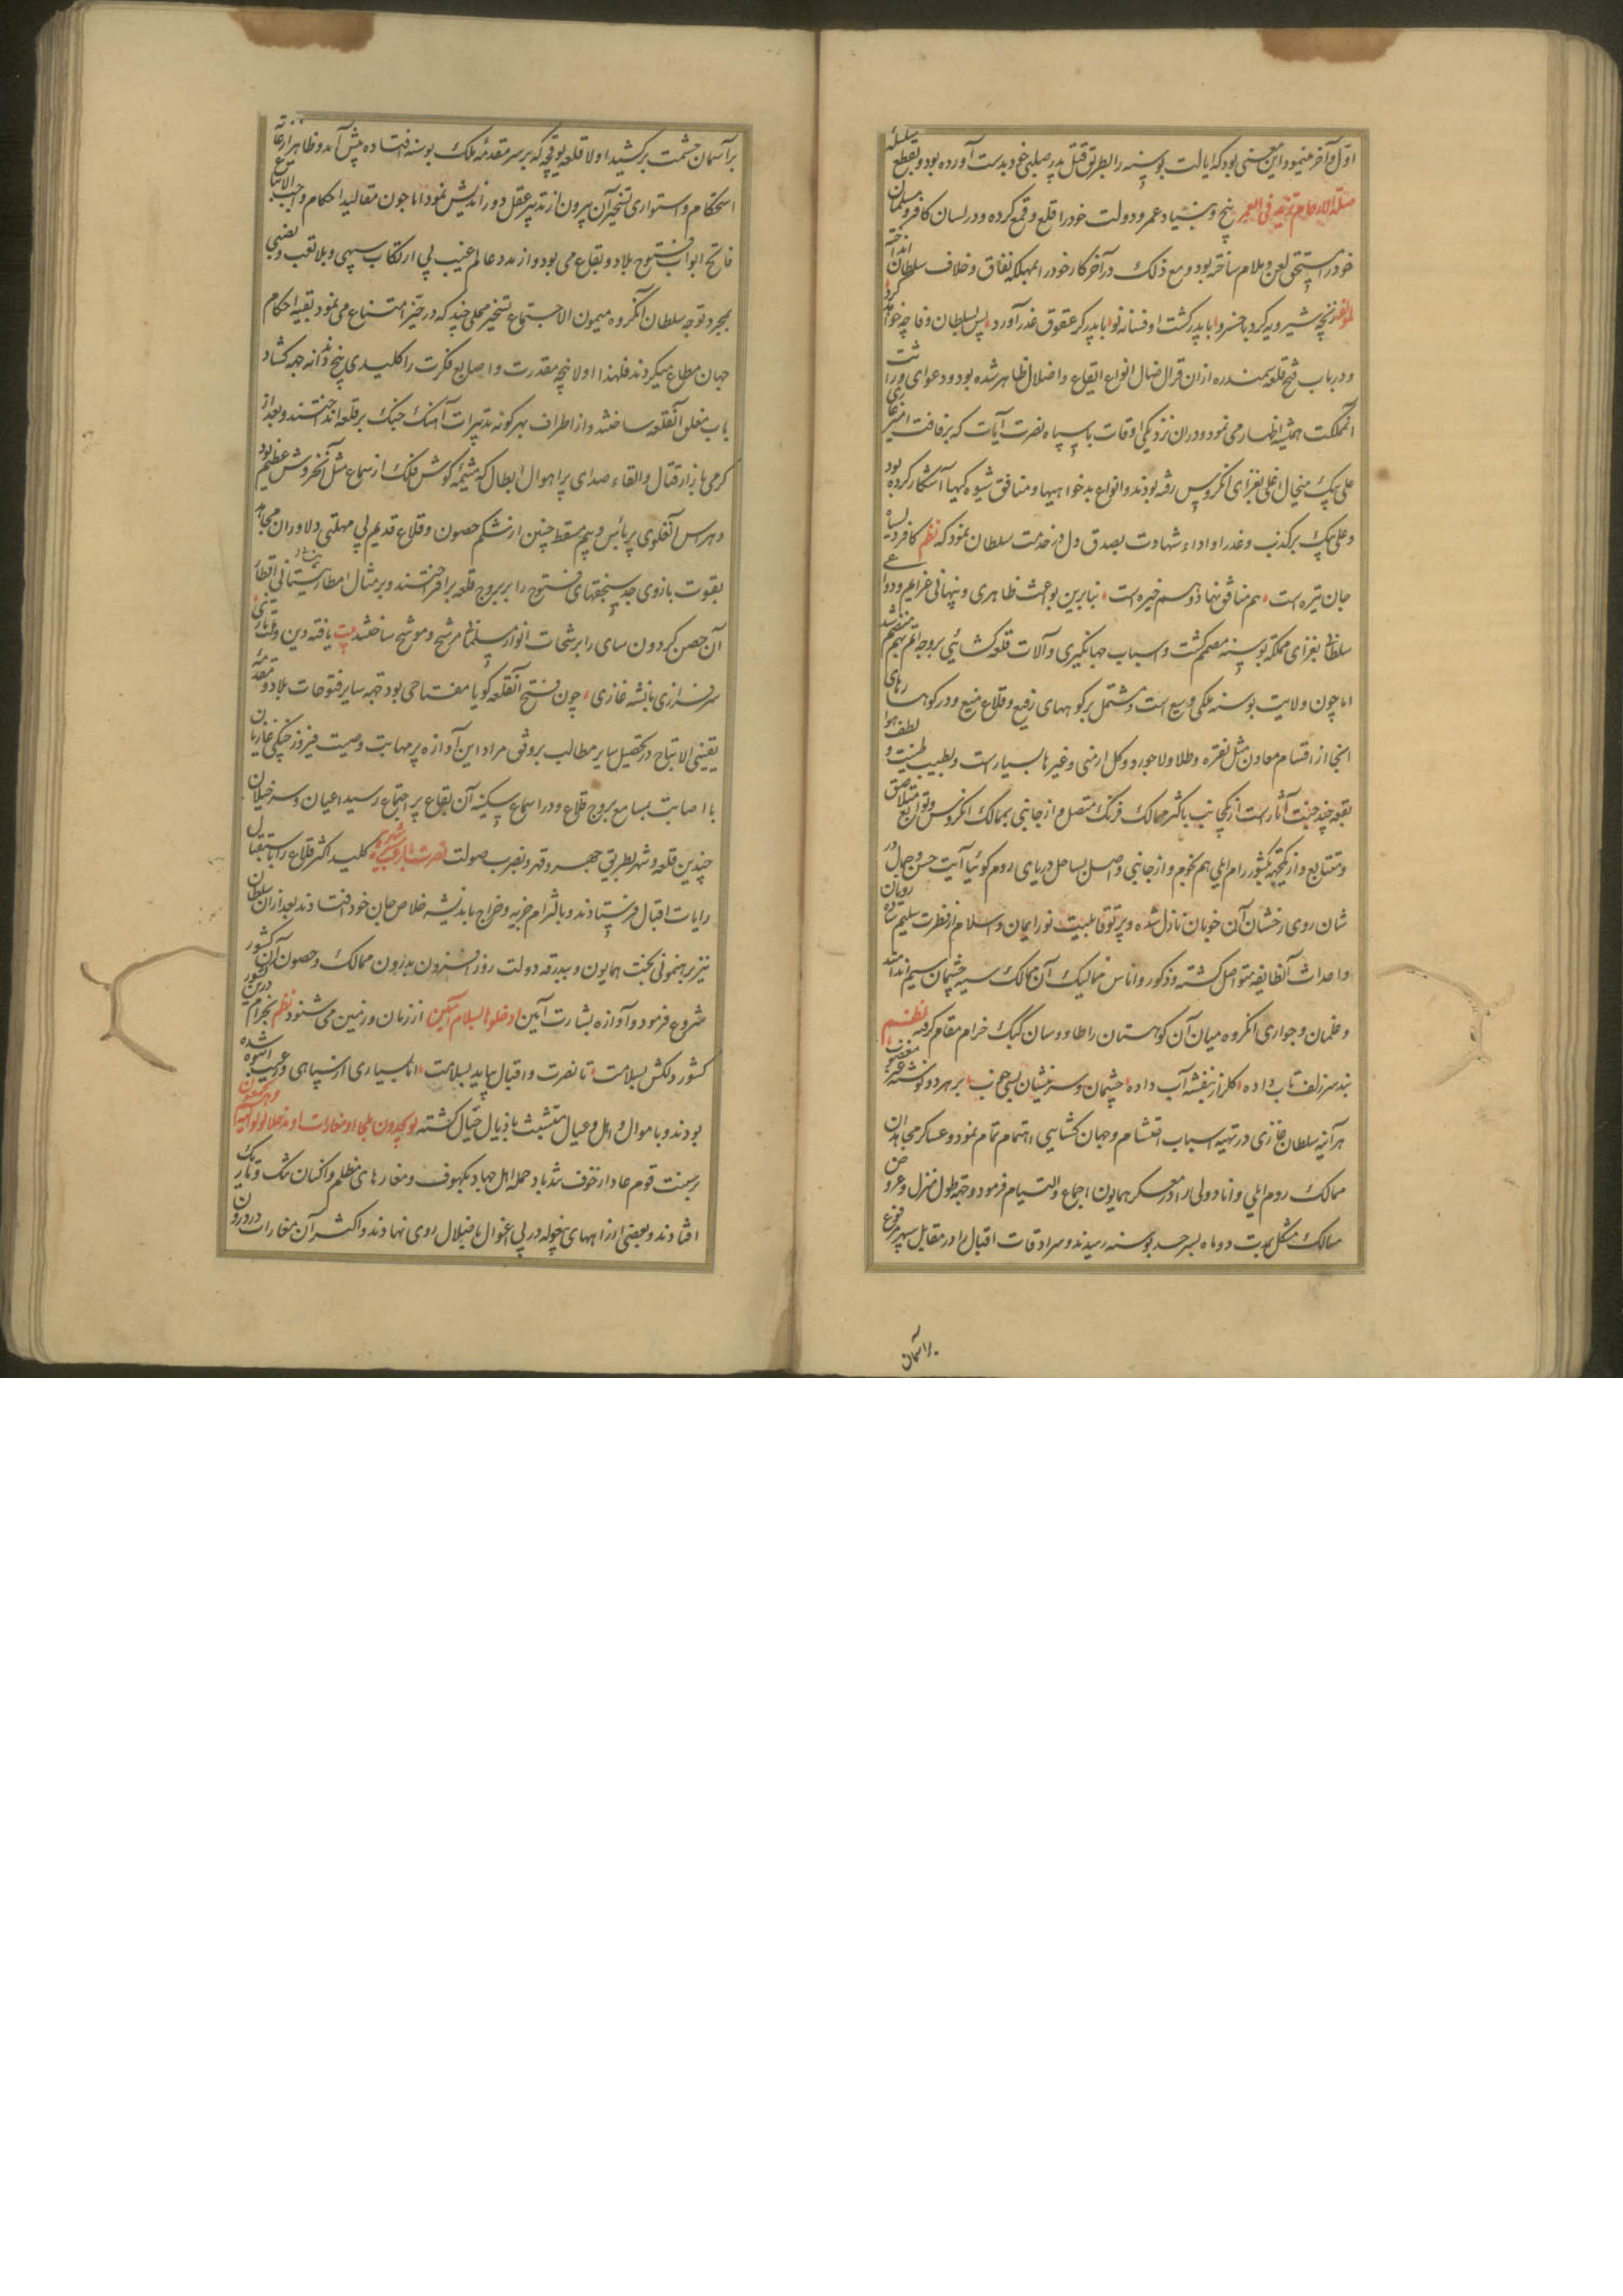 اول و آخر مینمود این معنی بود که ایالت بوسنه را بطریق قتل پدر صلبی خود بدست آورده بود و بقطع سلسله
صلة الارحام تزید فی العمر بیخ و بنیاد عمر و دولت خود را قلع و قمع کرده و در لسان کافر و مسلمان
خود را مستحق لعن و ملام ساخته بود و مع ذلک در آخر کار خود را بمهلکه نفاق و خلاف سلطان انداخته
آنچه شیرویه کرد با خسرو با پدر کشت او فسانه نو با پدر کر عقوق غدر آورد پس بسلطان وفا چه خواهد کرد
و در باب فتح قلعه سمندره ازان قرال ضال انواع ایقاع و اضلال ظاهر شده بود و دعوای وراثت
آنمملکت همیشه اظهار می نمود و دران نزدیکی اوقات با سپاه نصرت آیات که برفاقت
علی بیک میخال اغلی بغزای انکروس رفته بودند و انواع بدخواهیها و منافق شیوه کیها آشکار کرده بود
و علی بیک بر کذب و غدر او اداء شهادت بصدق دل در خدمت سلطان نمود که نظم کافر دل سیاه
جان تیره است هم منافق نهاد و هم خیره است بنابرین بواعث ظاهری و پنهانی عزایم و دواعی
سلطان بغزای مملکه بوسنه مصمم گشت و اسباب جهانگیری و آلات قلعه کشائی بر وجه اتم بهم
اما چون ولایت بوسنه ملکی وسیع است و مشتمل بر کوههای رفیع و قلاع منیع و در کوهسارهای
انجا از اقسام معادن مثل نقره و طلا و لاجورد و کل ارمنی و غیرها بسیارست و بطیب طینت و لطف هوا
بقعه چند جنت آثارست از یکجانب باکثر ممالک فرنگ متصل و از جانبی بممالک انکروس و توابع متلاصق
و متتابع و از یکجهة بکشور رام ایلی هم تخوم و از جانبی واصل بساحل دریای روم گوئیا آیت حسن و جمال در
شان روی رخشان آن خوبان نازل شده و پرتو قابلیت نور ایمان و اسلام از فطرت سلیم
و احداث آنطایفه متواصل گشته و ذکور و اناس ممالیک آن ممالک سیه چشمان سیم اندامند
و غلمان و جواری انکروه میان آن کوهستان را طاووسان کبک خرام مقام کرده نظم
بند سر زلف تاب داده کلرا ز بنفشه آب داده
هر آینه سلطان غازی در تهیه اسباب احتشام و جهان کشایی اهتمام تمام نمود و عساکر مجاهدان
ممالک روم ایلی و اناطولی را در معسکر همایون اجماع و التیام فرمود و جهة طول منزل و عروض
مسالک مشکل بمدت دو ماه بسرحد بوسنه رسیدند و سرادقات اقبال را در مقابل سپهر مرفوع
بر آسمان
بر آسمان حشمت بر کشید اولا قلعه یوقچه که بر سر مقدمه ملک بوسنه افتاده پیش آمد و ظاهرا از غایة
استحکام و استواری تسخیر آن بیرون از تدبیر عقل دوراندیش نمود اما چون مقالید احکام واجب الاتباع
فاتح ابواب فتوح بلاد و بقاع می بود و از مدد عالم غیب بی ارتکاب سببی و بلا تعب و نصبی
بمجرد توجه سلطان آنگروه میمون الاجتماع تسخیر محلی چند که در حیز امتناع می نمود بقیه احکام
جهان مطاع میکردند فلهذا اولا پنجه مقدرت و اصابع فکرت را کلیدی پنج دندانه جهة کشاد
باب مغلق آنقلعه ساختند و از اطراف بهر کونه تدبیرات آهنگ جنگ بر قلعه انداختند و بعد از
کرمی بازار قتال و القاء صدای پر اهوال ابطال که همیشه گوش فلک از سماع مثل آنخروش عظیم بود
و هراس آنغلوی پر بأس و بیم مسقط جنین از شکم حصون و قلاع قدیم بی مهلتی دلاوران مجاهد
بقوت بازوی جد سنجقهای فتوح را بر بروج قلعه برافراختند و بر مثال امطار
آن حصن کردون سای را برشحات انوار مسلمانی مرشح و موشح ساختند بیت یافته دین و ملت تازی
سرفرازی بشاه غازی چون فتح آنقلعه گویا مفتاحی بود جهة سایر فتوحات بلاد و مقدمه
یقینی الانتاج در تحصیل سایر مطالب بر وفق مراد این آوازه پر مهابت و صیت فیروز جنگی غازیان
با اصابت بمسامع بروج قلاع و در اسماع سکنه آن بقاع پر اجتماع رسید اعیان و سرخیلان
چندین قلعه و شهر بطریق جهر و قهر و بضرب صولت نصرت بالرعب مسیرة شهر کلید اکثر قلاع را باستقبال
رایات اقبال فرستادند و بالتزام جزیه و خراج باندیشه خلاص جان خود افتادند بعد ازان سلطان
نیز برهنمونی بخت همایون و ببدرقه دولت روز افزون بدرون ممالک و حصون آن کشور
شروع فرمود و آوازه بشارت آیین ادخلوها بسلام آمنین از زمان و زمین می شنود نظم بخرام درین کشور
کشور دلکش بسلامت تا نصرت و اقبال بیاید بسلامت اما بسیاری از سپاهی و رعیت
بودند و با اموال و اهل و عیال متشبث باذیال جبال گشته لو یجدون ملجأ او مغارات او مدخلا لولوا الیه وهم یجمحون
بر سنت قوم عاد از خوف تندباد حمله اهل جهاد بکهوف و مغارهای مظلم و اکنان تنگ و تاریک
افتادند و بعضی از راههای بیغوله در پی اغوال باضلال روی نهادند و اکثر آن مغارات در درون